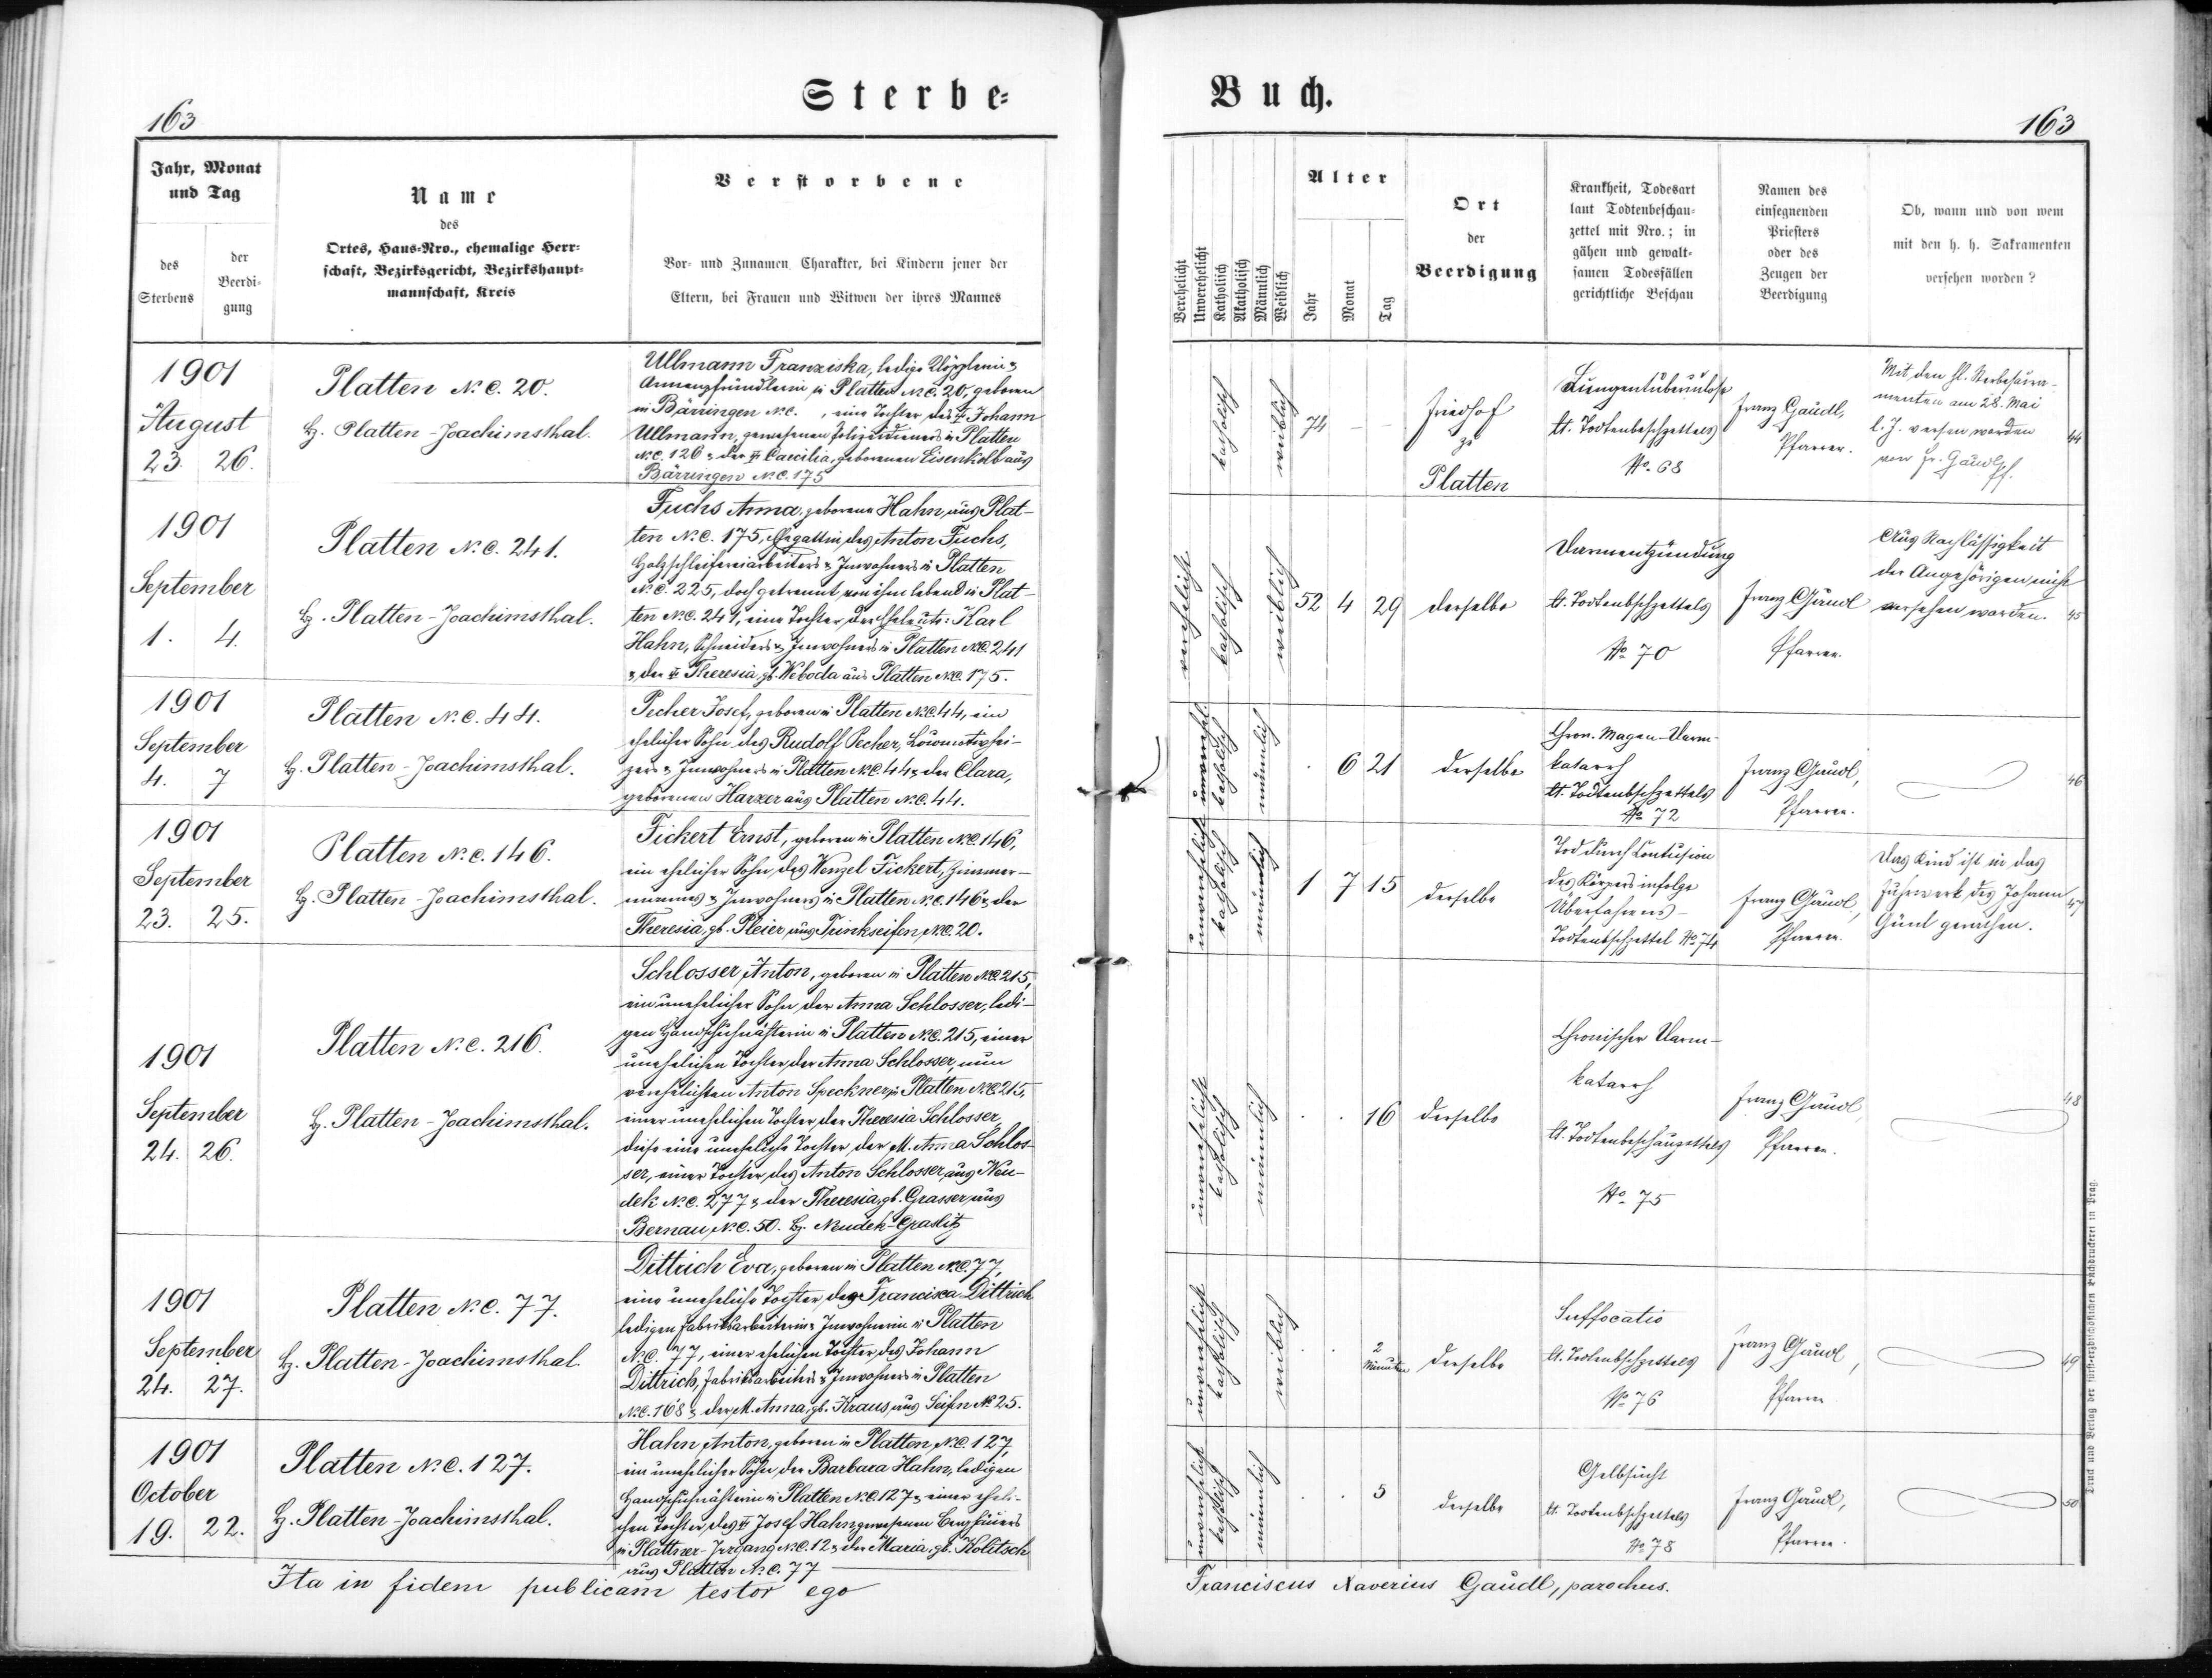 163
Sterbe-
Buch.
163
Jahr, Monat
und Tag
des
Sterbens
der
Beerdi-
gung
Name
des
Ortes, Haus-Nro., ehemalige Herr-
schaft, Bezirksgericht, Bezirkshaupt-
mannschaft, Kreis
Verstorbene
Vor- und Zunamen, Charakter, bei Kindern jener der
Eltern, bei Frauen und Witwen der ihres Mannes
Verehelicht
Unverehelicht
Katholisch
Akatholisch
Männlich
Weiblich
Alter
Jahr
Monat
Tag
Ort
der
Beerdigung
Krankheit, Todesart
laut Todtenbeschau-
zettel mit Nro.; in
gähen und gewalt-
samen Todesfällen
gerichtliche Beschau
Namen des
einsegnenden
Priesters
oder des
Zeugen der
Beerdigung
Ob, wann und von wem
mit den h. h. Sakramenten
versehen worden?
1901
August
23. 26.
Platten N.C. 20.
Bz. Platten-Joachimsthal.
Ullmann Franziska, ledige Klöpplerin &
Armenpfründlerin in Platten N.C. 20, geboren
in Bärringen N.C. , eine Tochter des Johann
Ullmann, gewesenen Polizeidieners in Platten
N.C. 126 & der Caecilia, geborenen Eisenkolb aus
Bärringen N.C. 175
katholisch
weiblich
74 – –
Friedhof
zu
Platten
Lungentuberculose
lt. Todtenbeschzettels
No. 68
Franz Gaudl,
Pfarrer.
Mit den hl. Sterbesacra-
menten am 28. Mai
l. J. versehen worden
von Fr. Gaudl Pf.
44
1901
September
1. 4.
Platten N.C. 241.
Bz. Platten-Joachimsthal.
Fuchs Anna, geborene Hahn, aus Plat-
ten N.C. 175, Ehegattin des Anton Fuchs,
Holzschleifereiarbeiters & Inwohners in Platten
N.C. 225, doch getrennt von ihm lebend in Plat-
ten N.C. 241, eine Tochter der Eheleute: Karl
Hahn, Schneiders & Inwohners in Platten N.C. 241
& der Theresia, gb. Weboda aus Platten N.C. 175.
verehelicht
katholisch
weiblich
52 4 29
derselbe
Darmentzündung
lt. Todtenbschzettels
No 70
Franz Gaudl
Pfarrer.
Aus Nachlässigkeit
der Angehörigen nicht
versehen worden.
45
1901
September
4. 7
Platten N.C. 44.
Bz. Platten-Joachimsthal.
Pecher Josef, geboren in Platten N.C. 44, ein
ehelicher Sohn des Rudolf Pecher, Locomotivhei-
zers & Inwohners in Platten N.C. 44 & der Clara,
geborenen Harzer aus Platten N.C. 44.
unverehel.
katholisch
männlich
. 6 21
derselbe
Chron. Magen-Darm-
katarrh
lt. Todtenbschzettels
No 72
Franz Gaudl,
Pfarrer.
46
1901
September
23. 25.
Platten N.C. 146.
Bz. Platten-Joachimsthal.
Fickert Ernst, geboren in Platten N.C. 146,
ein ehelicher Sohn des Wenzel Fickert, Zimmer-
mannes & Inwohners in Platten N.C. 146 & der
Theresia, gb. Pleier, aus Trinkseifen N.C. 20.
unverehelicht
katholisch
männlich
1 7 15
derselbe
Tod durch Contusion
des Körpers infolge
Überfahrens-
Todtenbschzettel No 74
Franz Gaudl,
Pfarrer.
Das Kind ist in das
Fuhrwerk des Johann
Günl gerathen.
47
1901
September
24. 26.
Platten N.C. 216.
Bz. Platten-Joachimsthal.
Schlosser Anton, geboren in Platten N.C. 215,
ein unehelicher Sohn der Anna Schlosser, ledi-
gen Handschuhnähterin in Platten N.C. 215, einer
unehelichen Tochter der Anna Schlosser, nun
verehelichten Anton Speckner in Platten N.C. 215,
einer unehelichen Tochter der Theresia Schlosser,
diese eine uneheliche Tochter der M. Anna Schlos-
ser, einer Tochter des Anton Schlosser aus Neu-
dek N.C. 277 & der Theresia, gb. Grasser aus
Bernau, N.C. 50. Bz. Neudek-Graslitz
unverehelicht
katholisch
männlich
. . 16
derselbe
Chronischer Darm-
katarrh
lt. Todtenbeschauzettels
No 75
Franz Gaudl,
Pfarrer.
48
1901
September
24. 27.
Platten N.C. 77.
Bz. Platten-Joachimsthal
Dittrich Eva, geboren in Platten N.C. 77,
eine uneheliche Tochter der Francisca Dittrich
ledigen Fabriksarbeiterin & Inwohnerin in Platten
N.C. 77, einer ehelichen Tochter des Johann
Dittrich, Fabriksarbeiters & Inwohners in Platten
N.C. 168 & der M. Anna, gb. Kraus, aus Seifen No 25.
unverehelicht
katholisch
weiblich
. . 2
Minuten
derselbe
Suffocatio
lt. Todtenbschzettels
No 76
Franz Gaudl,
Pfarrer
49
1901
October
19. 22.
Platten N.C. 127.
Bz. Platten-Joachimsthal.
Hahn Anton, geboren in Platten N.C. 127,
ein unehelicher Sohn der Barbara Hahn, ledigen
Handschuhnähterin in Platten N.C. 127 & einer eheli-
chen Tochter des Josef Hahn, gewesenen Berghäuers
in Plattner-Irrgang N.C. 12 & der Maria, gb. Kolitsch
aus Platten N.C. 77
unverehelicht
katholisch
männlich
. . 5
derselbe
Gelbsucht
lt. Todtenbschzettels
No 78
Franz Gaudl,
Pfarrer.
50
Ita in fidem publicam testor ego
Franciscus Xaverius Gaudl, parochus.
Druck und Verlag der fürst-erzbischöflichen Buchdruckerei in Prag.